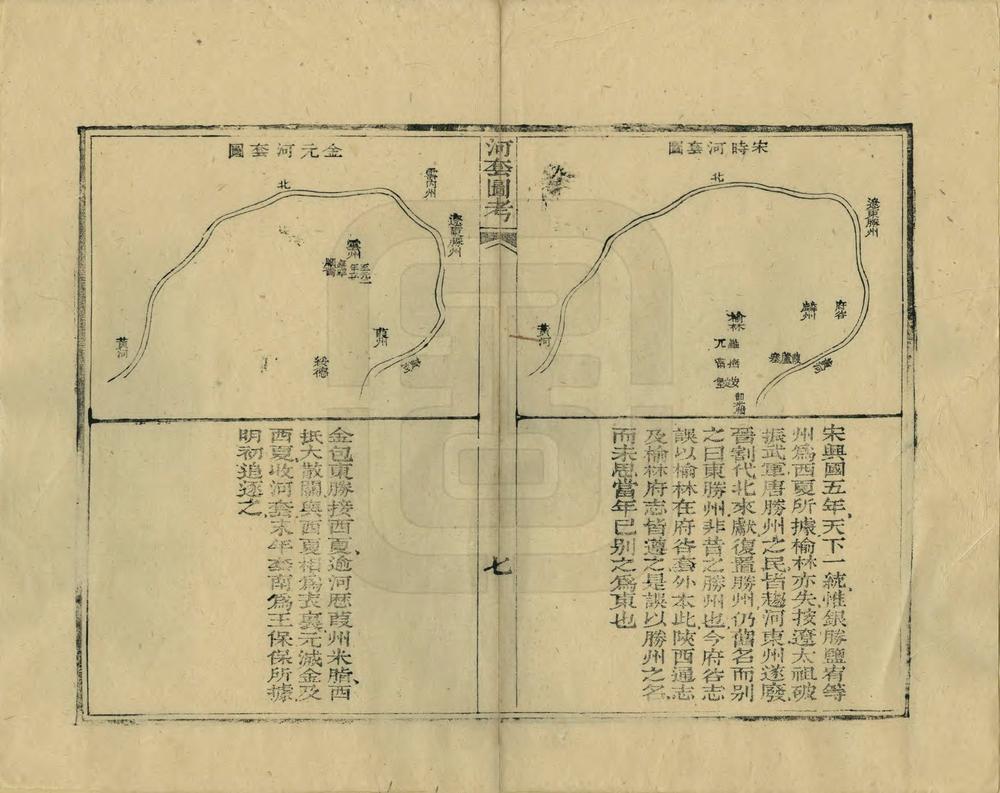 宋時河套圖
北
遼東勝州
府谷
麟州
榆林
葭蘆寨
黃河
黃河
宋興國五年天下一統惟銀勝鹽宥等
州爲西夏所據榆林亦失按遼太祖破
振武軍唐勝州之民皆趨河東州遂廢
晉割代北來獻復置勝州仍舊名而別
之曰東勝州非昔之勝州也今府谷志
誤以榆林在府谷套外本此陝西通志
及榆林府志皆遵之是誤以勝州之名
而未思當年已別之爲東也
河套圖考
七
金元河套圖
北
雲內州
遼東勝州
雲州
葭州
綏德
黃河
黃河
金包東勝接西夏逾河歷葭州米脂西
抵大散關與西夏相爲表裏元滅金及
西夏收河套末年套南爲王保保所據
明初追逐之